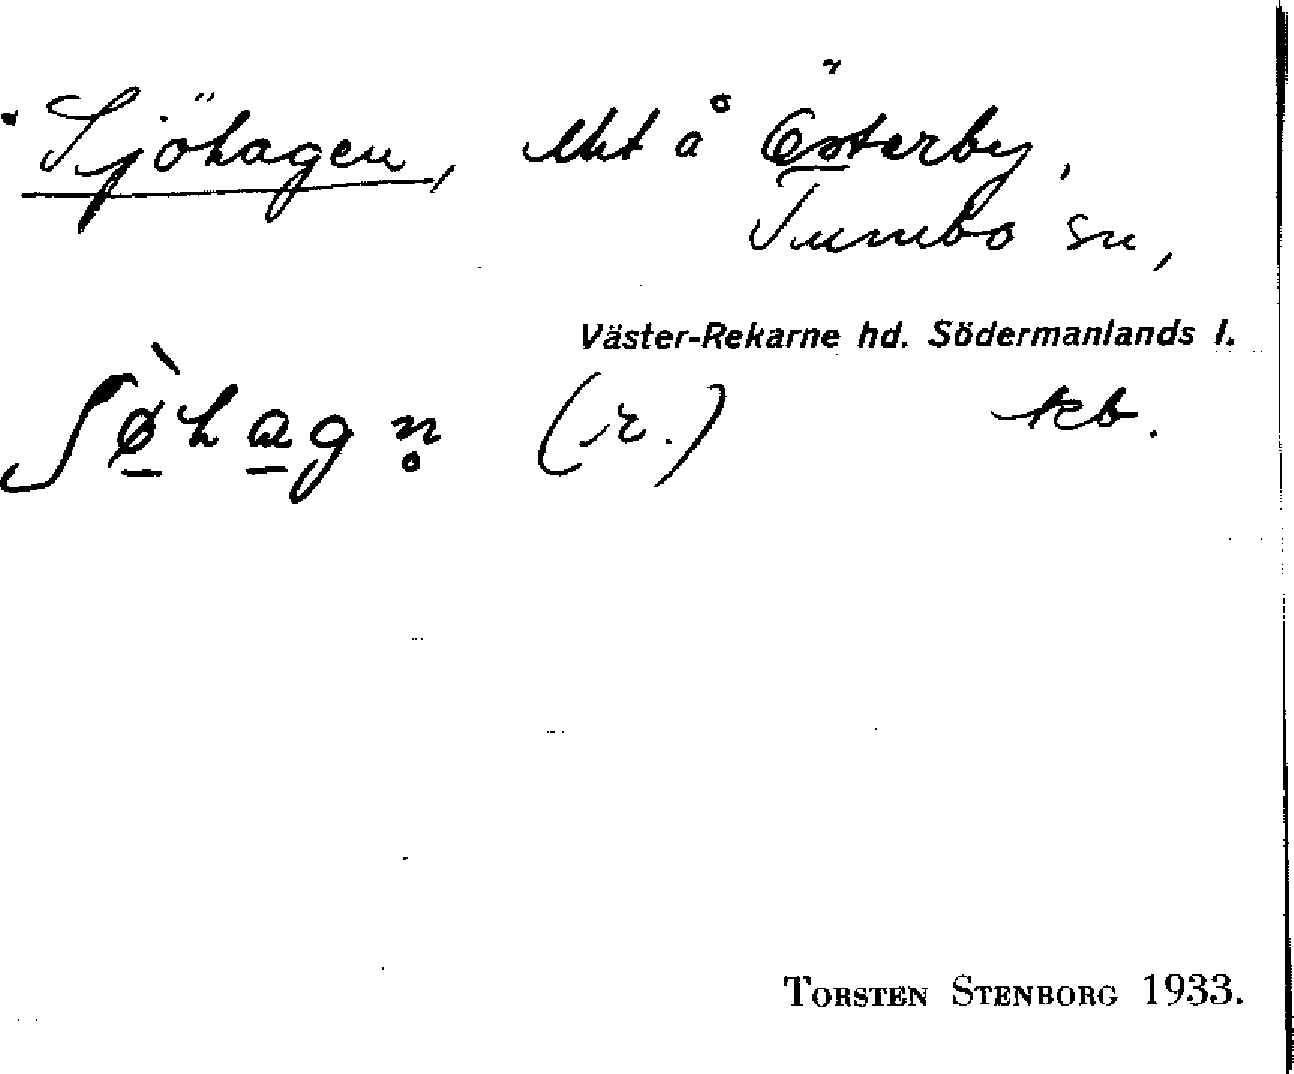 Sjöhagen, lht å Österby,
Tumbo sn,
Väster-Rekarne hd. Södermanlands l.
ʃø̀hagn̥ (r.)
TORSTEN STENBORG 1933.